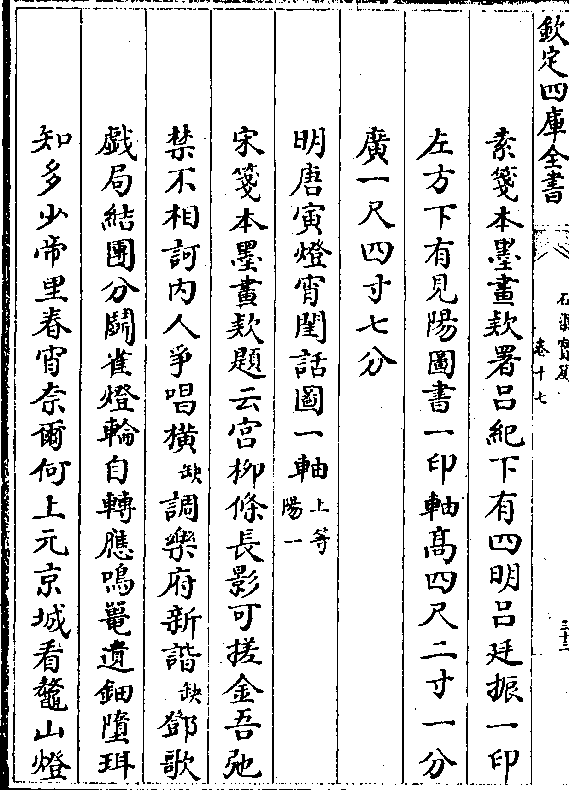 欽定四庫全書
石渠寶笈
卷十七
三十三
素箋本墨畫欵署吕紀下有四明吕廷振一印
左方下有見陽圖書一印軸髙四尺二寸一分
廣一尺四寸七分
明唐寅燈宵閨話圖一軸上等陽一
宋箋本墨畫欵題云宫柳條長影可搓金吾弛
禁不相訶内人爭唱橫缺調樂府新諧缺鄧歌
戯局結團分鬬雀燈輪自轉應鳴鼍遺鈿墮珥
知多少帝里春宵奈爾何上元京城看鼇山燈